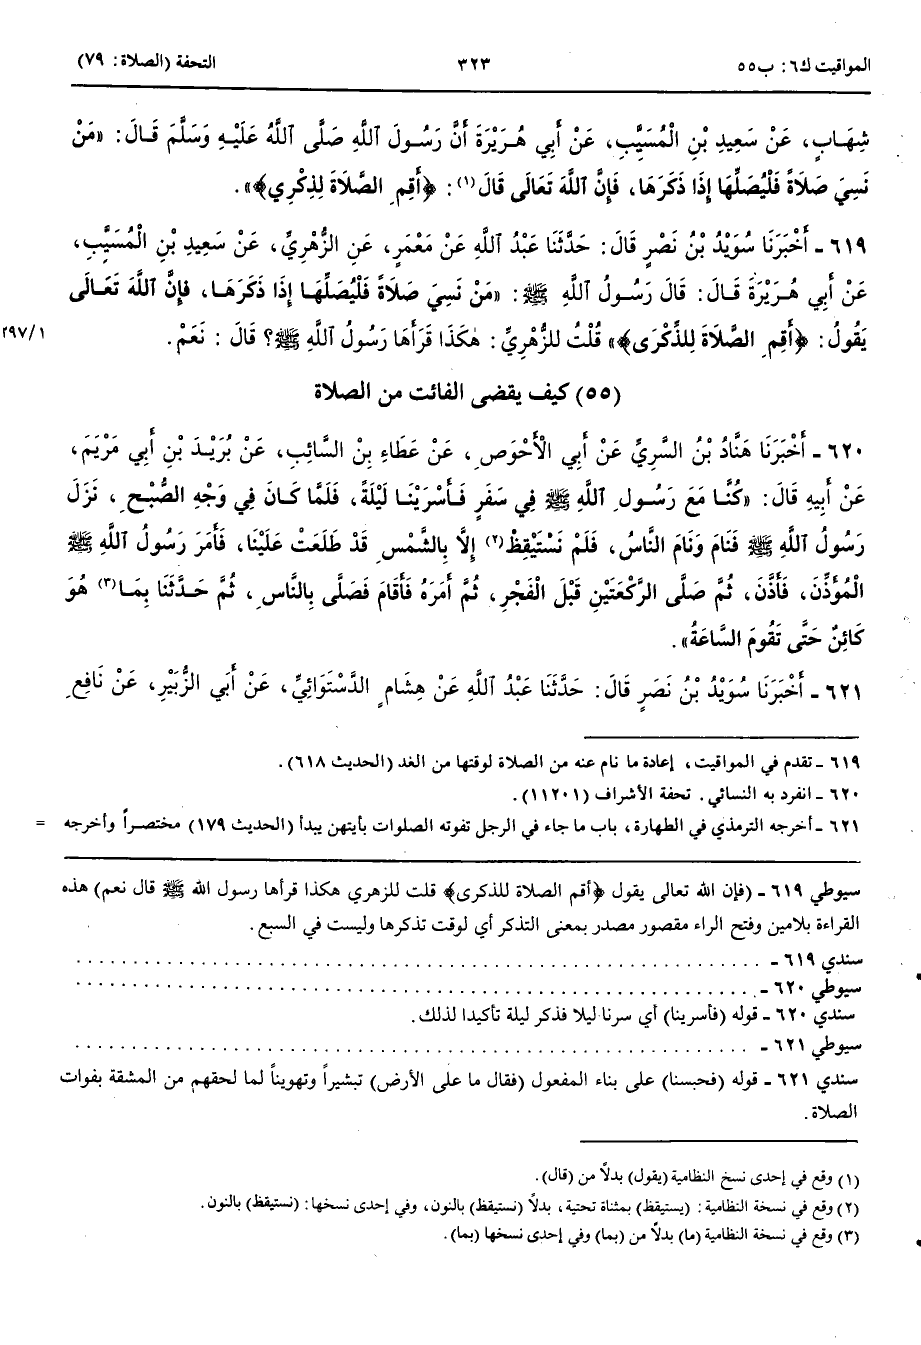 المواقيت ك٦: ب٥٥ ٣٢٣ التحفة (الصلاة: ٧٩)
شِهَـابٍ، عَنْ سَعِيدِ بْنِ الْمُسَيَّبِ، عَنْ أَبِي هُـرَيْرَةَ أَنَّ رَسُولَ اللَّهِ صَلَّى اللَّهُ عَلَيْهِ وَسَلَّمَ قَـالَ: «مَنْ
نَسِيَ صَلَاةً فَلْيُصَلِّهَا إِذَا ذَكَرَهَا، فَإِنَّ اللَّهَ تَعَالَى قَالَ(١): ﴿أَقِمِ الصَّلَاةَ لِذِكْرِي﴾».
٦١٩ ـ أَخْبَرَنَا سُوَيْدُ بْنُ نَصْرٍ قَالَ: حَدَّثَنَا عَبْدُ اللَّهِ عَنْ مَعْمَرٍ، عَنِ الزُّهْرِيِّ، عَنْ سَعِيدِ بْنِ الْمُسَيَّبِ،
عَنْ أَبِي هُـرَيْرَةَ قَـالَ: قَالَ رَسُـولُ اللَّهِ ﷺ: «مَنْ نَسِيَ صَلَاةً فَلْيُصَلِّهَـا إِذَا ذَكَرَهَـا، فَإِنَّ اللَّهَ تَعَالَى
يَقُولُ: ﴿أَقِمِ الصَّلَاةَ لِلذِّكْرَى﴾» قُلْتُ لِلزُّهْرِيِّ: هٰكَذَا قَرَأَهَا رَسُولُ اللَّهِ ﷺ؟ قَالَ: نَعَمْ.
٢٩٧/١
(٥٥) كيف يقضى الفائت من الصلاة
٦٢٠ ـ أَخْبَرَنَا هَنَّادُ بْنُ السَّرِيِّ عَنْ أَبِي الْأَحْوَصِ، عَنْ عَطَاءِ بْنِ السَّائِبِ، عَنْ بُرَيْدَ بْنِ أَبِي مَرْيَمَ،
عَنْ أَبِيهِ قَالَ: «كُنَّا مَعَ رَسُـولِ اللَّهِ ﷺ فِي سَفَرٍ فَـأَسْرَيْنَـا لَيْلَةً، فَلَمَّا كَـانَ فِي وَجْهِ الصُّبْحِ، نَزَلَ
رَسُولُ اللَّهِ ﷺ فَنَامَ وَنَامَ النَّاسُ، فَلَمْ نَسْتَيْقِظْ(٢) إِلَّا بِالشَّمْسِ قَدْ طَلَعَتْ عَلَيْنَا، فَأَمَرَ رَسُولُ اللَّهِ ﷺ
الْمُؤَذِّنَ، فَأَذَّنَ، ثُمَّ صَلَّى الرَّكْعَتَيْنِ قَبْلَ الْفَجْرِ، ثُمَّ أَمَرَهُ فَأَقَامَ فَصَلَّى بِالنَّاسِ، ثُمَّ حَـدَّثَنَا بِمَـا(٣) هُوَ
كَائِنٌ حَتَّى تَقُومَ السَّاعَةُ».
٦٢١ ـ أَخْبَرَنَا سُوَيْدُ بْنُ نَصْرٍ قَالَ: حَدَّثَنَا عَبْدُ اللَّهِ عَنْ هِشَامٍ الدَّسْتَوَائِيِّ، عَنْ أَبِي الزُّبَيْرِ، عَنْ نَافِعِ
٦١٩ ـ تقدم في المواقيت، إعادة ما نام عنه من الصلاة لوقتها من الغد (الحديث ٦١٨).
٦٢٠ ـ انفرد به النسائي. تحفة الأشراف (١١٢٠١).
٦٢١ ـ أخرجه الترمذي في الطهارة، باب ما جاء في الرجل تفوته الصلوات بأيتهن يبدأ (الحديث ١٧٩) مختصـراً وأخرجه =
سيوطي ٦١٩ ـ (فإن الله تعالى يقول ﴿أقم الصلاة للذكرى﴾ قلت للزهري هكذا قرأها رسول الله ﷺ قال نعم) هذه
القراءة بلامين وفتح الراء مقصور مصدر بمعنى التذكر أي لوقت تذكرها وليست في السبع.
سندي ٦١٩ ـ . . . . . . . . . . . . . . . . . . . . . . . . . . . . . .
سيوطي ٦٢٠ ـ . . . . . . . . . . . . . . . . . . . . . . . . . . . . . .
سندي ٦٢٠ ـ قوله (فأسرينا) أي سرنا ليلا فذكر ليلة تأكيدا لذلك.
سيوطي ٦٢١ ـ . . . . . . . . . . . . . . . . . . . . . . . . . . . . . .
سندي ٦٢١ ـ قوله (فحبسنا) على بناء المفعول (فقال ما على الأرض) تبشيراً وتهويناً لما لحقهم من المشقة بفوات
الصلاة.
(١) وقع في إحدى نسخ النظامية (يقول) بدلاً من (قال).
(٢) وقع في نسخة النظامية: (يستيقظ) بمثناة تحتية، بدلاً (نستيقظ) بالنون، وفي إحدى نسخها: (نستيقظ) بالنون.
(٣) وقع في نسخة النظامية (ما) بدلاً من (بما) وفي إحدى نسخها (بما).